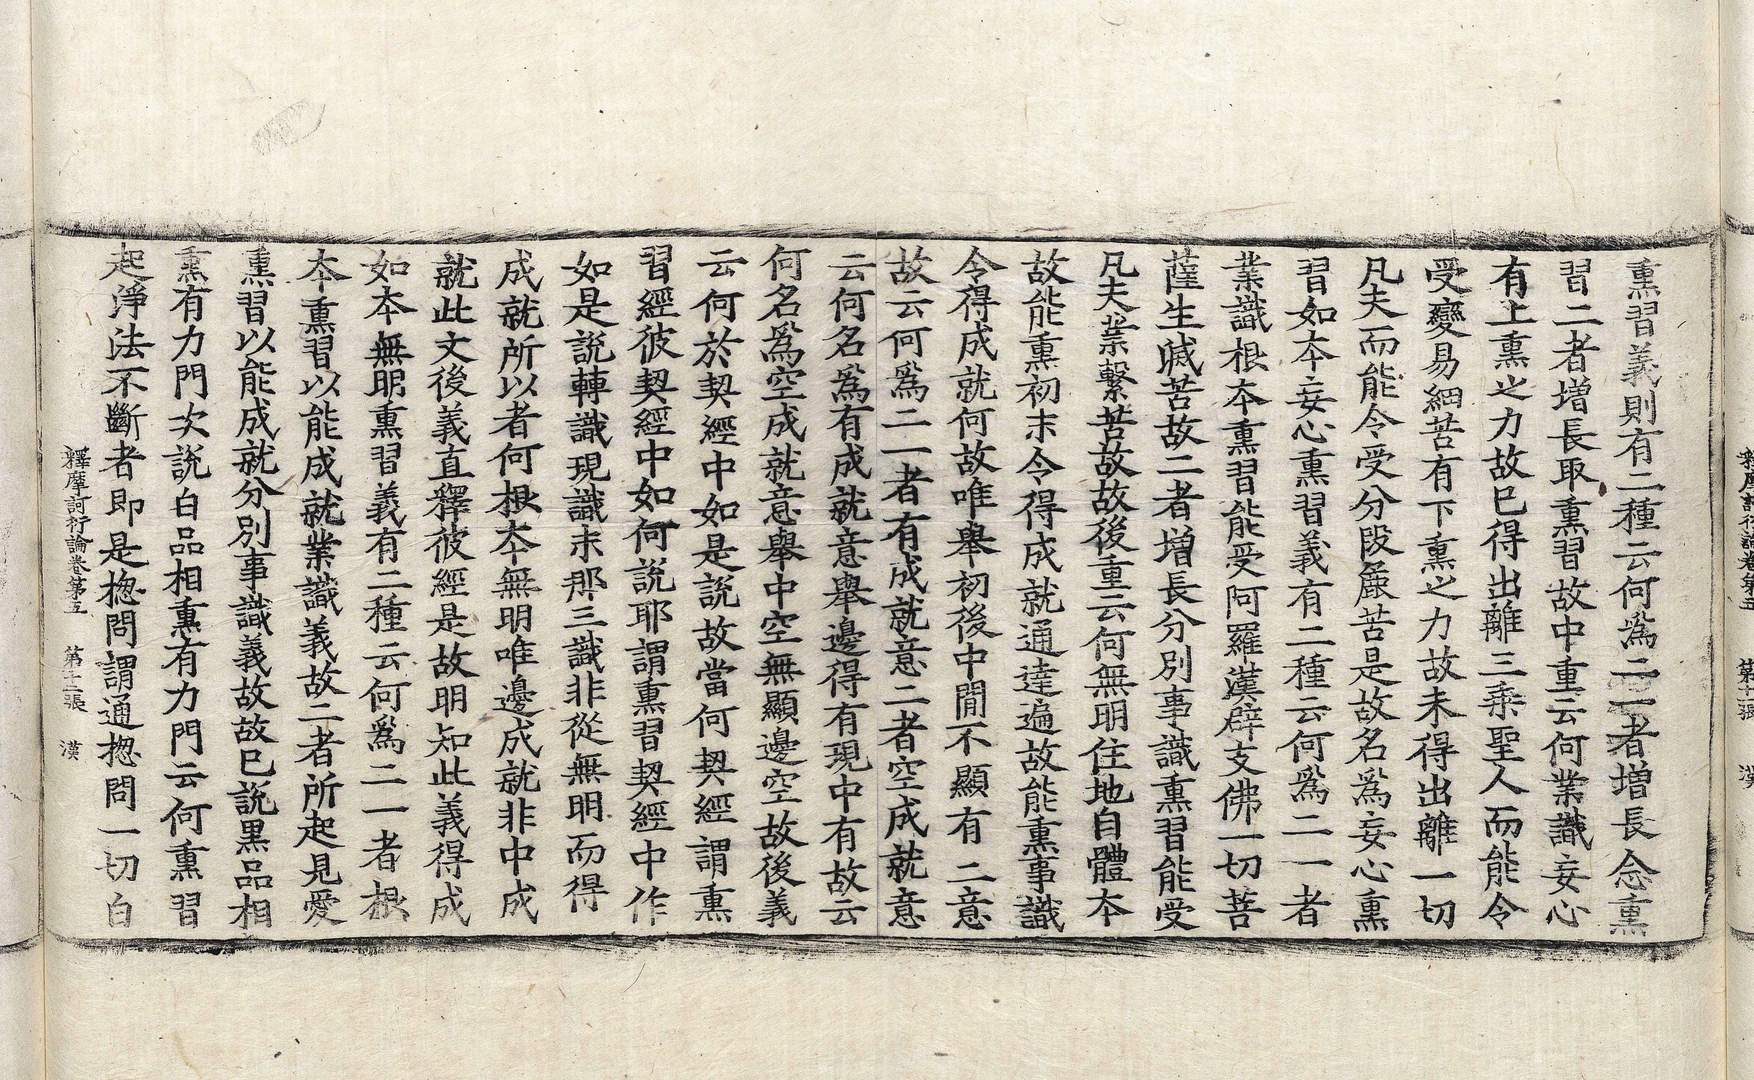 熏習義則有二種云何爲二一者增長念熏
習二者增長取熏習故中重云何業識妄心
有上熏之力故已得出離三乘聖人而能令
受變易細苦有下熏之力故未得出離一切
凡夫而能令受分段麁苦是故名爲妄心熏
習如本妄心熏習義有二種云何爲二一者
業識根本熏習能受阿羅漢辟支佛一切菩
薩生滅苦故二者增長分別事識熏習能受
凡夫業繫苦故故後重云何無明住地自體本
故能熏初末令得成就通達遍故能熏事識
令得成就何故唯舉初後中閒不顯有二意
故云何爲二一者有成就意二者空成就意
云何名爲有成就意舉邊得有現中有故云
何名爲空成就意舉中空無顯邊空故後義
云何於契經中如是說故當何契經謂熏
習經彼契經中如何說耶謂熏習契經中作
如是說轉識現識末那三識非從無明而得
成就所以者何根本無明唯邊成就非中成
就此文後義直釋彼經是故明知此義得成
如本無明熏習義有二種云何爲二一者根
本熏習以能成就業識義故二者所起見愛
熏習以能成就分別事識義故故已說黑品相
熏有力門次說白品相熏有力門云何熏習
起淨法不斷者即是揔問謂通揔問一切白
釋摩訶衍論卷第五　第十二張　漢